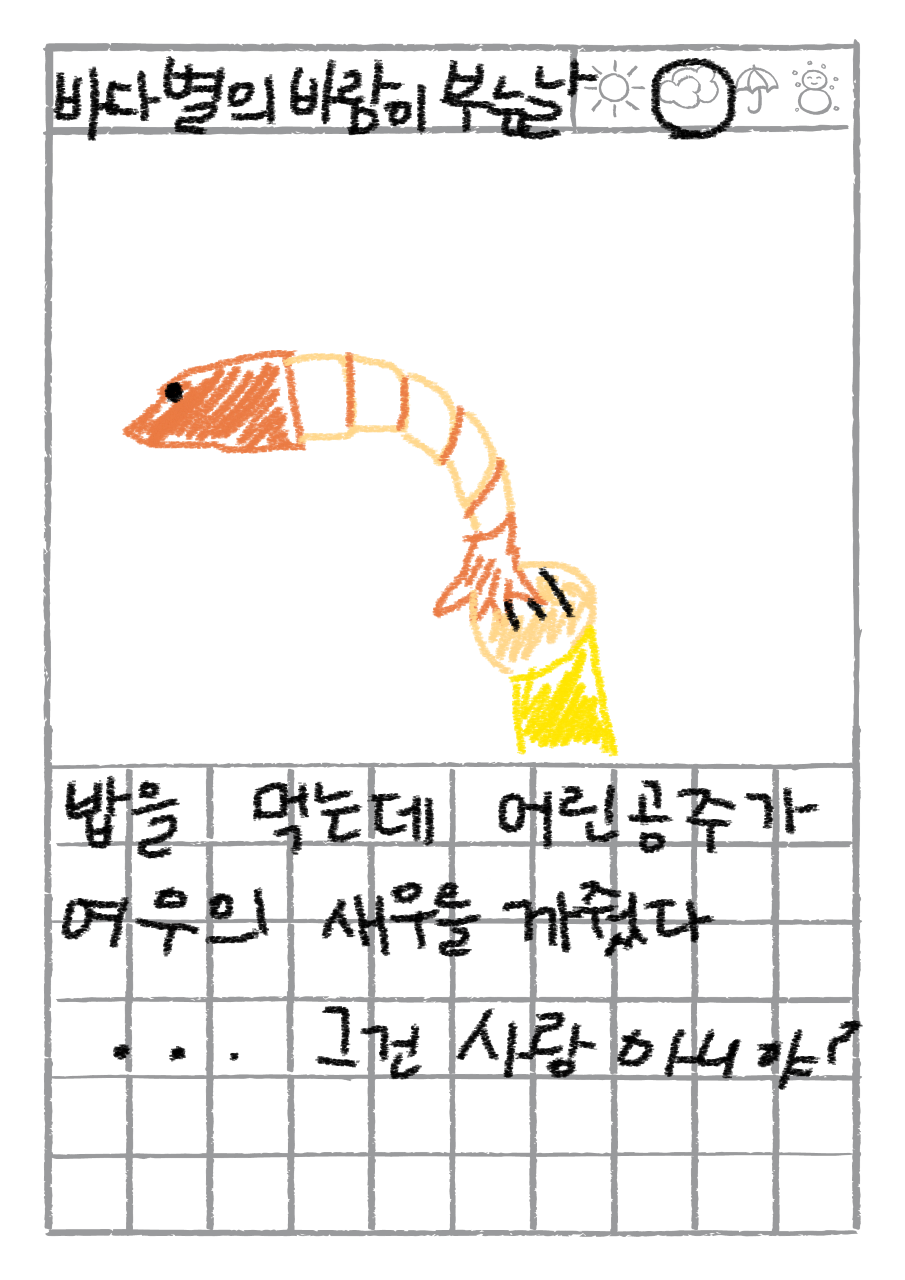 바다별의 바람이 부는날
밥을 먹는데 어린공주가
여우의 새우를 까줬다
... 그건 사랑 아니야?